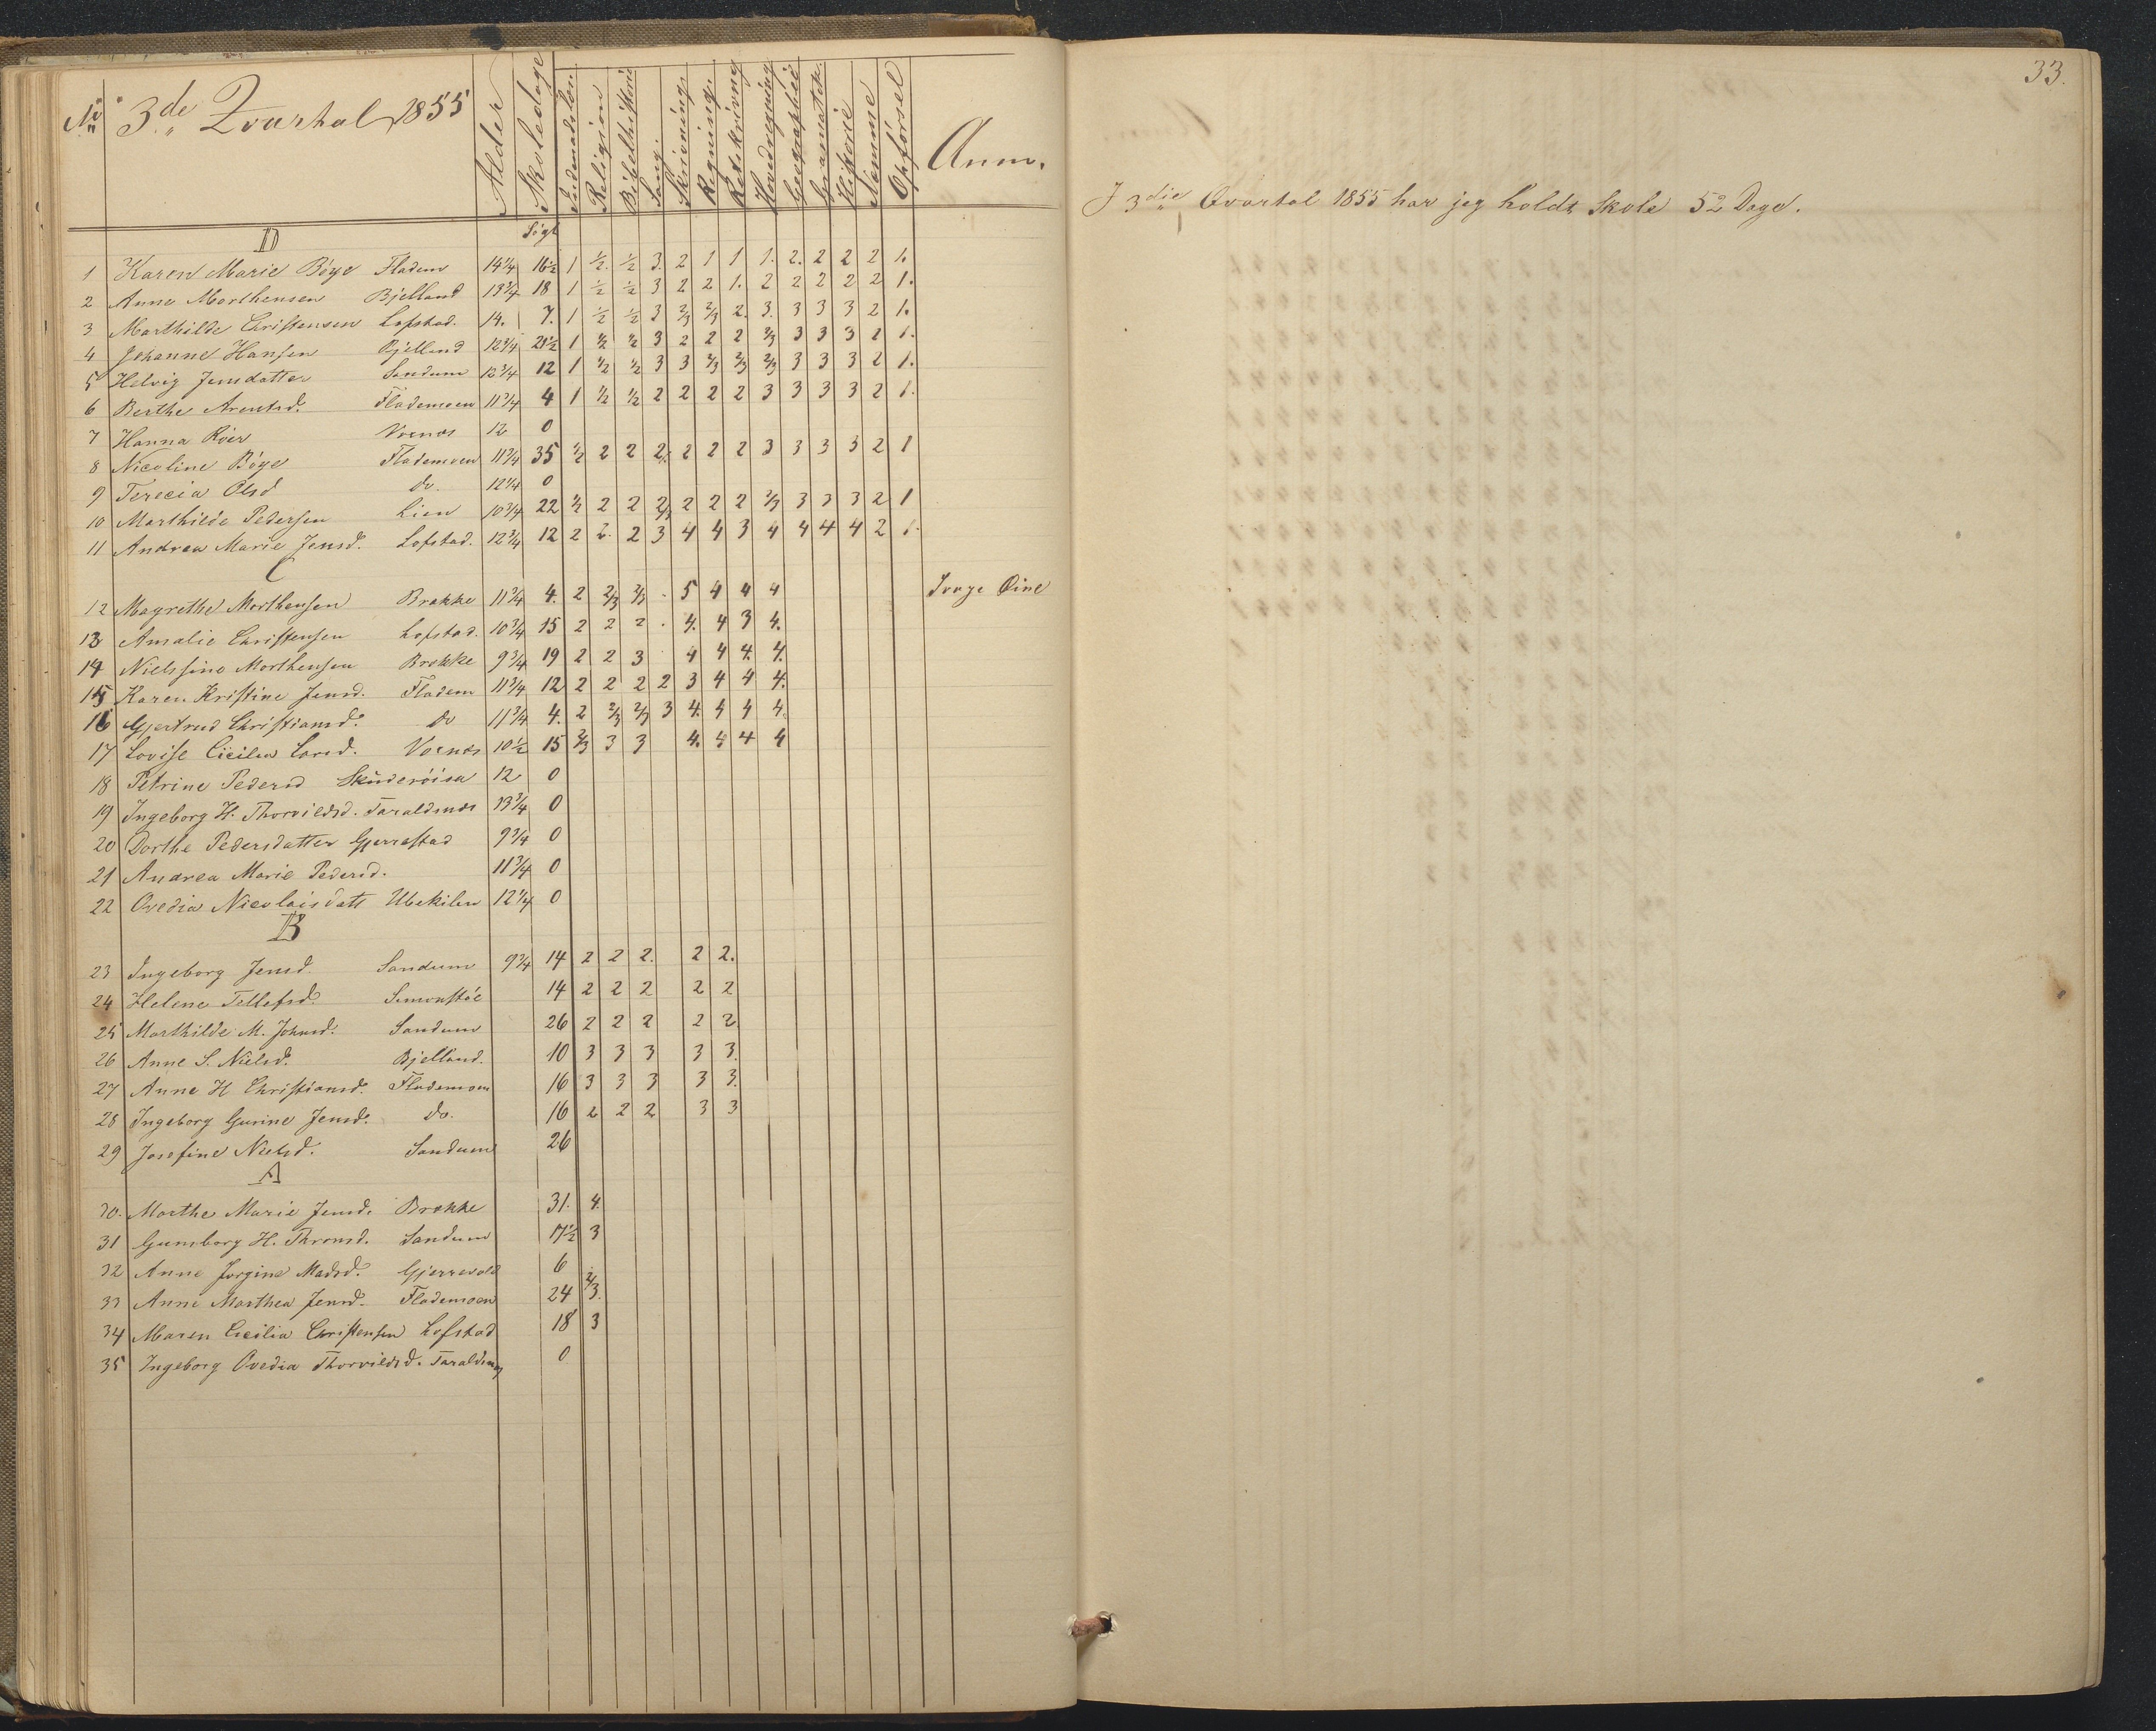 No 3de Qvartal 1855 Alder Skoledage Indenadslæs. Religion Bibelhistorie Sang. Skrivning Regning. Retskrivning Hovedregning Geographie Gramatik. Historie Nemme Opførsel Anm.
D Søgt
1 Karen Marie Bøye Fladem 14 1/4 16 1/2 1 1/2. 1/2 3. 2 1 1 1. 2. 2 2 2 1.
2 Anne Morthensen Bjelland 13 3/4 18 1 1/2 1/2 3 2 2 1. 2 2 2 2 2 1.
3 Marthilde Christensen Lofstad. 14. 7. 1 1/2 1/2 3 2/3 2/3 2. 3. 3 3 3 2 1.
4 Johanne Hansen Bjelland 12 3/4 21 1/2 1 1/2 1/2 3 2 2 2 2/3 3 3 3 2 1.
5 Helvig Jensdatter Sandum 12 3/4 12 1 1/2 1/2 3 3 2/3 2/3 2/3 3 3 3 2 1.
6 Berthe Arentsd. Flademoen 11 3/4 4 1 1/2 1/2 2 2 2 2 3 3 3 3 2 1.
7 Hanna Röer Voxnæs 12 0
8 Nicoline Bøye Flademoen 11 3/4 35 1/2 2 2 2. 2 2 2 3 3 3 3 2 1
9 Terecia Olsd do. 12 1/4 0
10 Marthilde Pedersen Lien 10 3/4 22 1/2 2 2 2/3 2 2 2 2/3 3 3 3 2 1
11 Andrea Marie Jensd. Lofstad. 12 3/4 12 2 2. 2 3 4 4 3 4 4 4 4 2 1.
C
12 Magrethe Morthensen Brække 11 3/4 4. 2 2/3 2/3 . 5 4 4 4 Svage Øine
13 Amalie Christensen Lofstad. 10 3/4 15 2 2 2 . 4. 4 3 4.
14 Nielsine Morthensen Brekke 9 3/4 19 2 2 3 4 4 4. 4.
15 Karen Kristine Jensd. Fladem 11 3/4 12 2 2 2 2 3 4 4 4.
16 Gjertrud Christiansd. do 11 3/4 4. 2 2/3 2/3 3 4. 4 4 4.
17 Lovise Cicilia Larsd. Voxnæs 10 1/2 15 2/3 3 3 4. 4 4 4
18 Petrine Pedersd 12 0
19 Ingeborg H. Thorvildsd. Taraldsnæs 13 3/4 0
20 Dorthe Pedersdatter Gjerrestad 9 3/4 0
21 Andrea Marie Pedersd. 11 3/4 0
22 Ovedia Nicolaisdatt Ubekilen 12 1/4 0
B
23 Ingeborg Jensd. Sandum 9 3/4 14 2 2 2. 2 2.
24 Helene Tellefsd. Simonstøe 14 2 2 2 2 2
25 Marthilde M. Johnsd. Sandum 26 2 2 2 2 2
26 Anne S. Nielsd. Bjelland. 10 3 3 3 3 3.
27 Anne H Christiansd. Flademoen 16 3 3 3 3 3.
28 Ingeborg Gurine Jensd. do. 16 2 2 2 3 3
29 Josefine Nielsd. Sandum 26
A
30. Marthe Marie Jensd. Brække 31. 4.
31 Gunborg H. Thronsd. Sandum 17 1/2 3
32 Anne Jorgine Madsd. Gjerrevold 6
33 Anne Marthea Jensd. Flademoen 24 2/3.
34 Maren Cicilia Christensen Lofstad 18 3
35 Ingeborg Ovedia Thorvildsd. Taraldsnæs 0
33.
I 3die Qvartal 1855 har jeg holdt Skole 52 Dage.